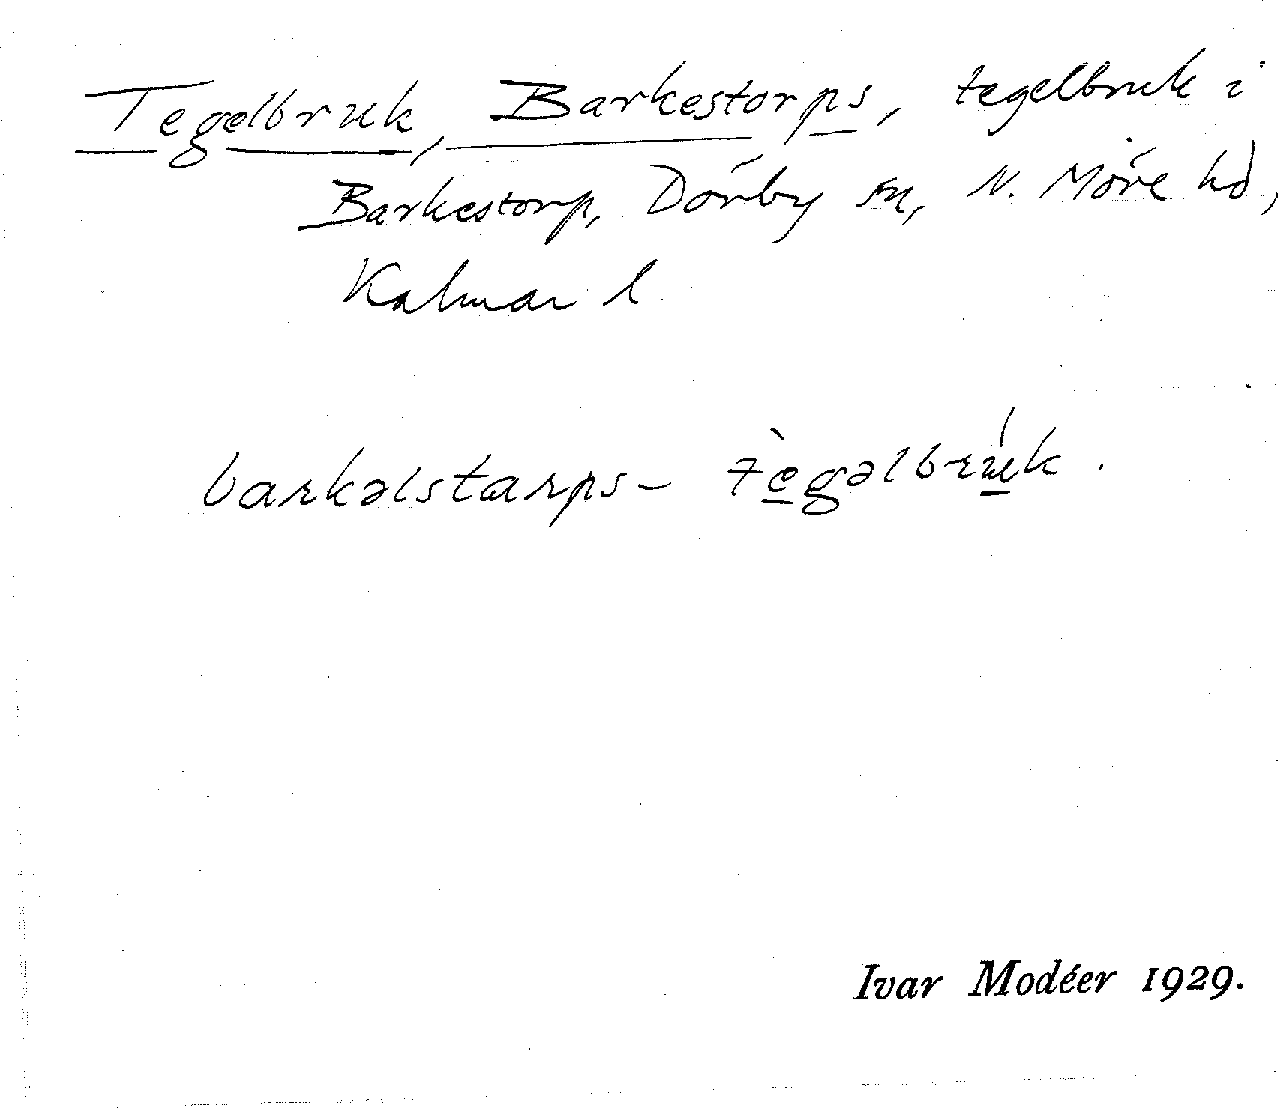 Tegelbruk, Barkestorps, tegelbruk i
Barkestorp, Dörby sn, N. Möre hd,
Kalmar l
barkəlstarps- tègəlbrúk.
Ivar Modéer 1929.